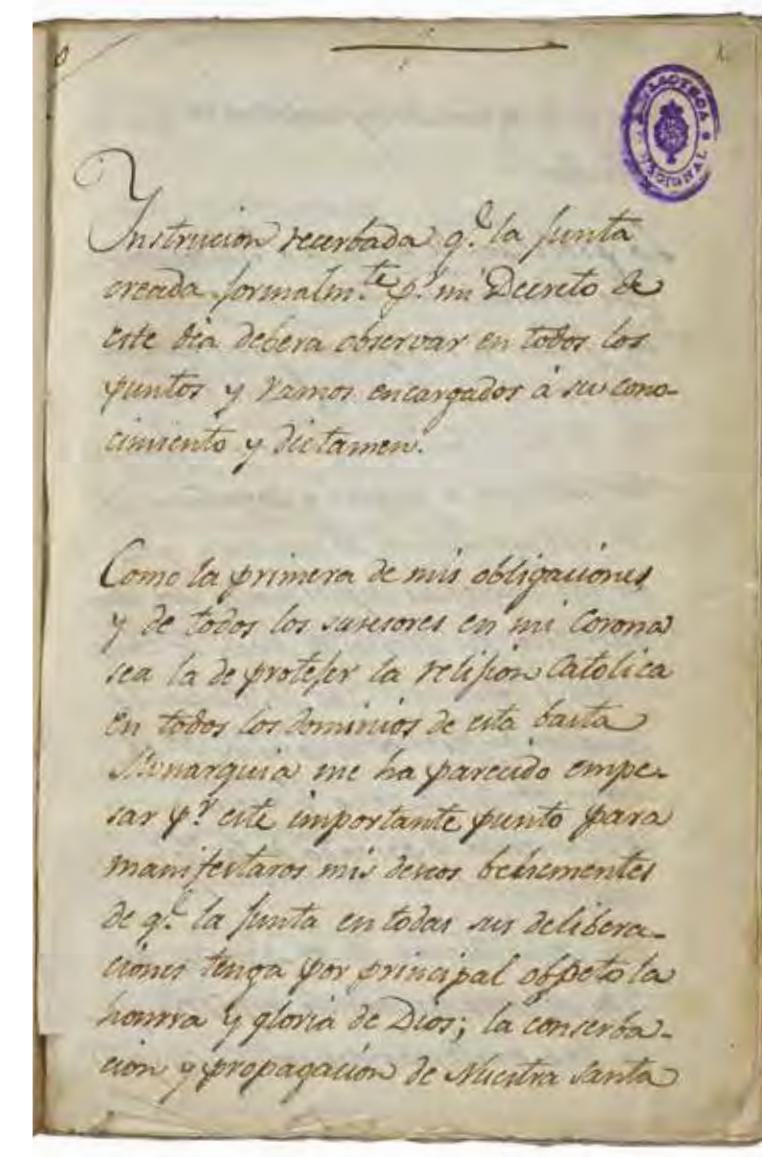 1.
BIBLIOTECA NACIONAL
Ynstrucion recerbada q.e la Junta
creada formalm.te p.r mi Decreto de
este dia debera observar en todos los
puntos y Ramos encargados á su cono-
cimiento y dictamen.
Como la primera de mis obligaciones
y de todos los susesores en mi Corona
sea la de protejer la relijion Catolica
en todos los dominios de esta basta
Monarquia me ha parecido empe-
sar p.r este importante punto para
manifestaros mis deseos behementes
de q.e la Junta en todas sus delibera-
ciones tenga por principal objeto la
honrra y gloria de Dios; la conserba-
cion y propagacion de Nuestra Santa